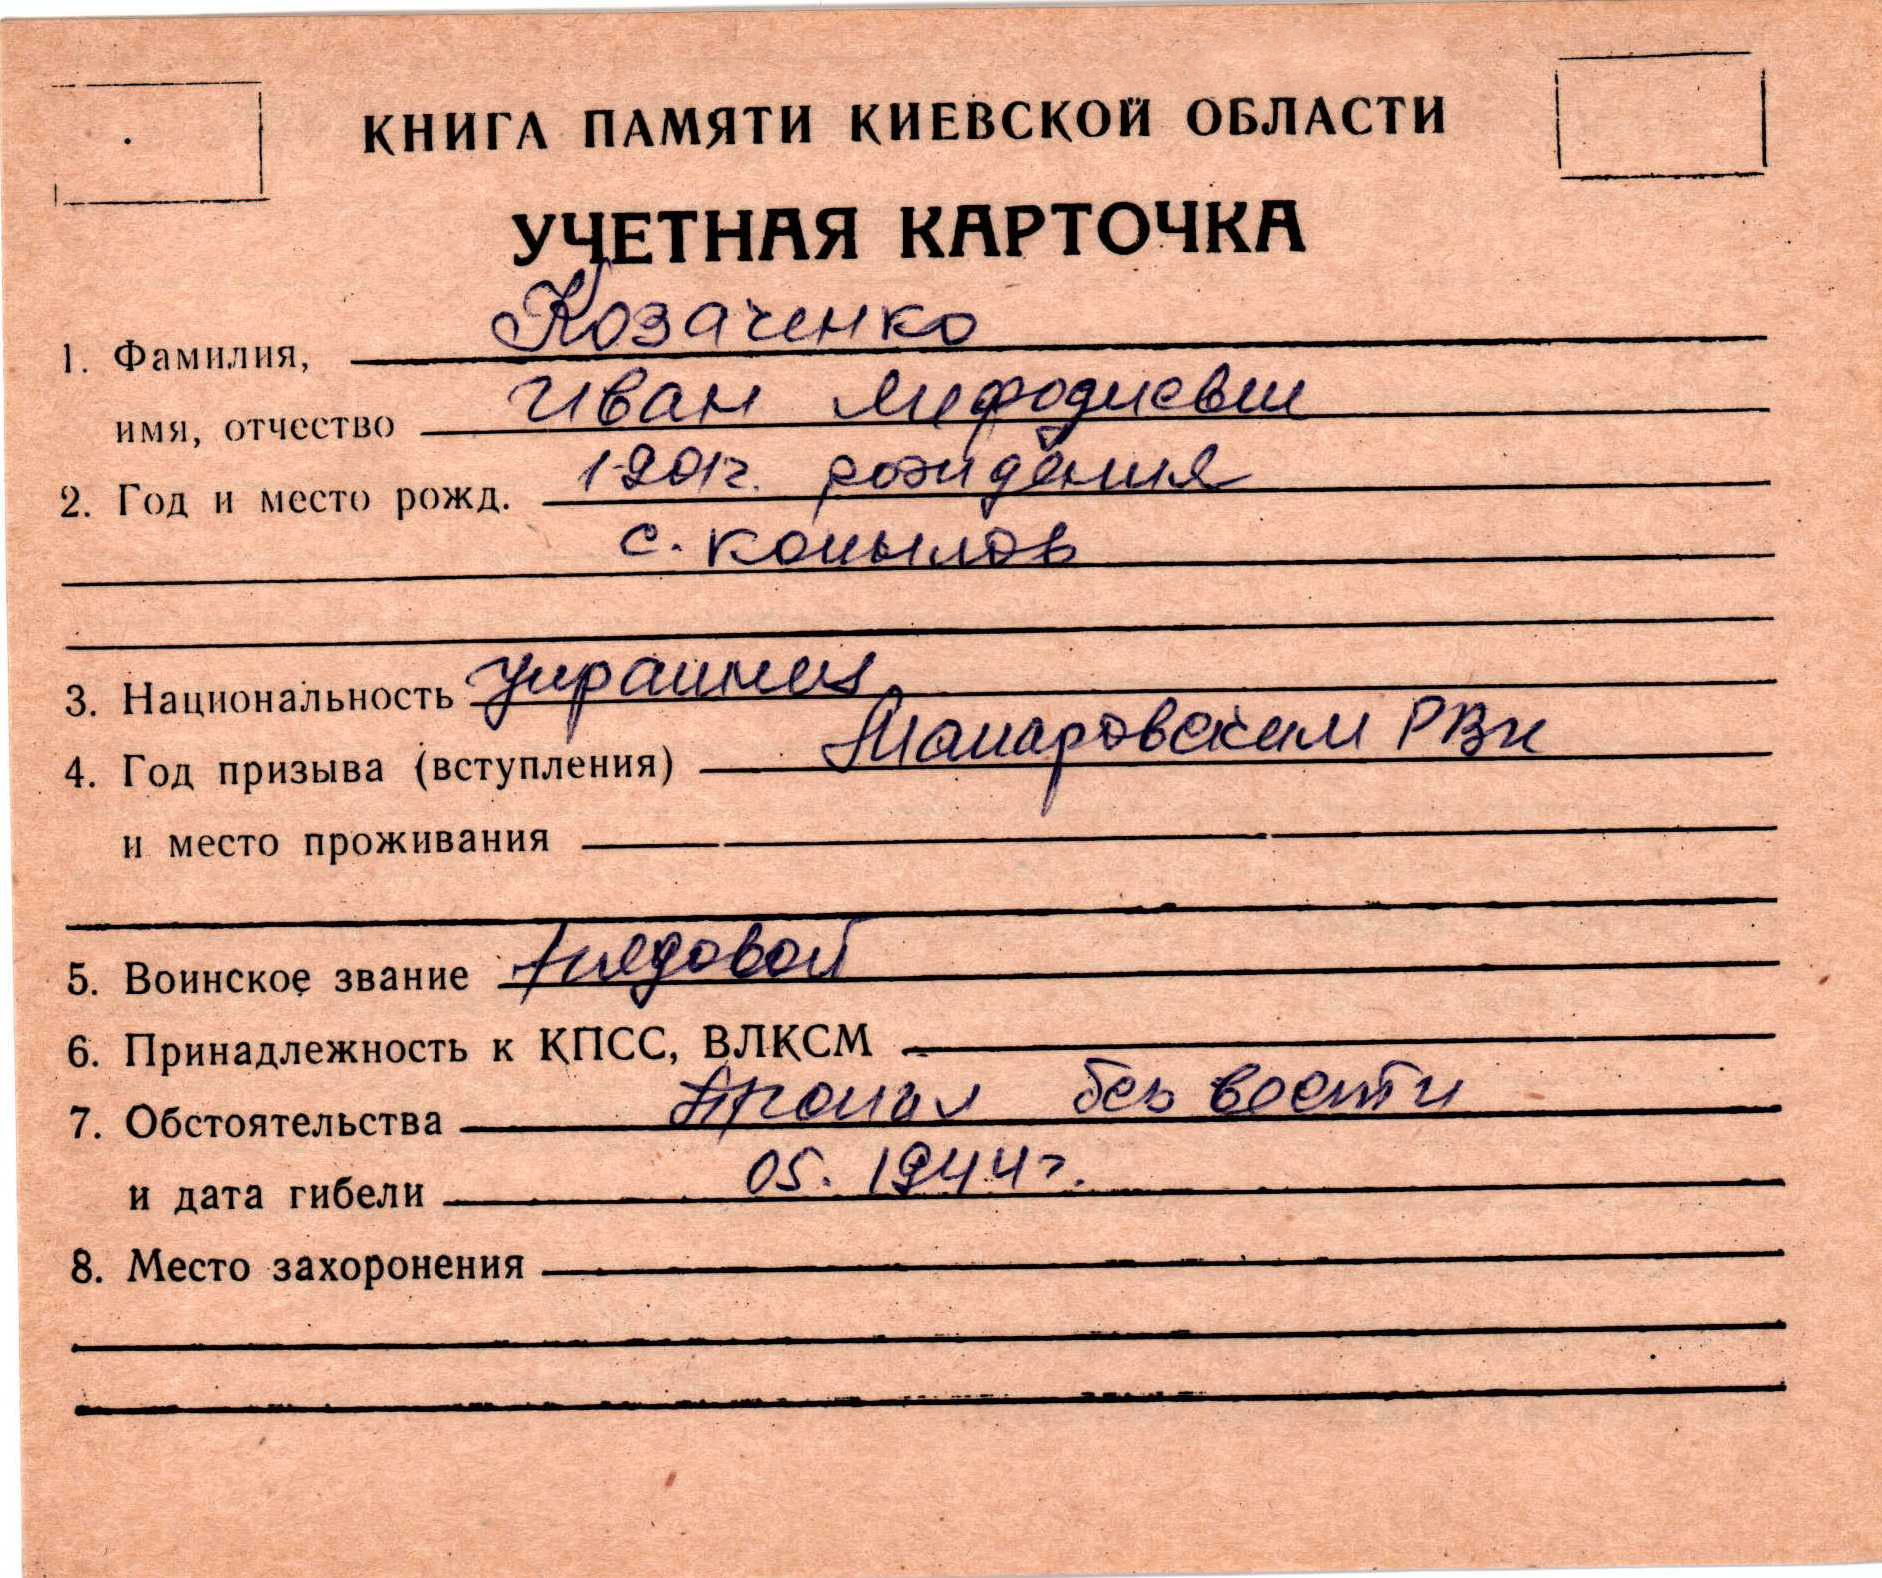 КНИГА ПАМЯТИ КИЕВСКОЙ ОБЛАСТИ
УЧЕТНАЯ КАРТОЧКА
1. Фамилия, Козаченко
имя, отчество Иван Мифодиевич
2. Год и место рожд. 1901г. рождения
с. Копылов
3. Национальность украинец
4. Год призыва (вступления) Макаровским РВК
и место проживания
5. Воинское звание рядовой
6. Принадлежность к КПСС, ВЛКСМ
7. Обстоятельства Пропал без вести
и дата гибели 05. 1944г.
8. Место захоронения